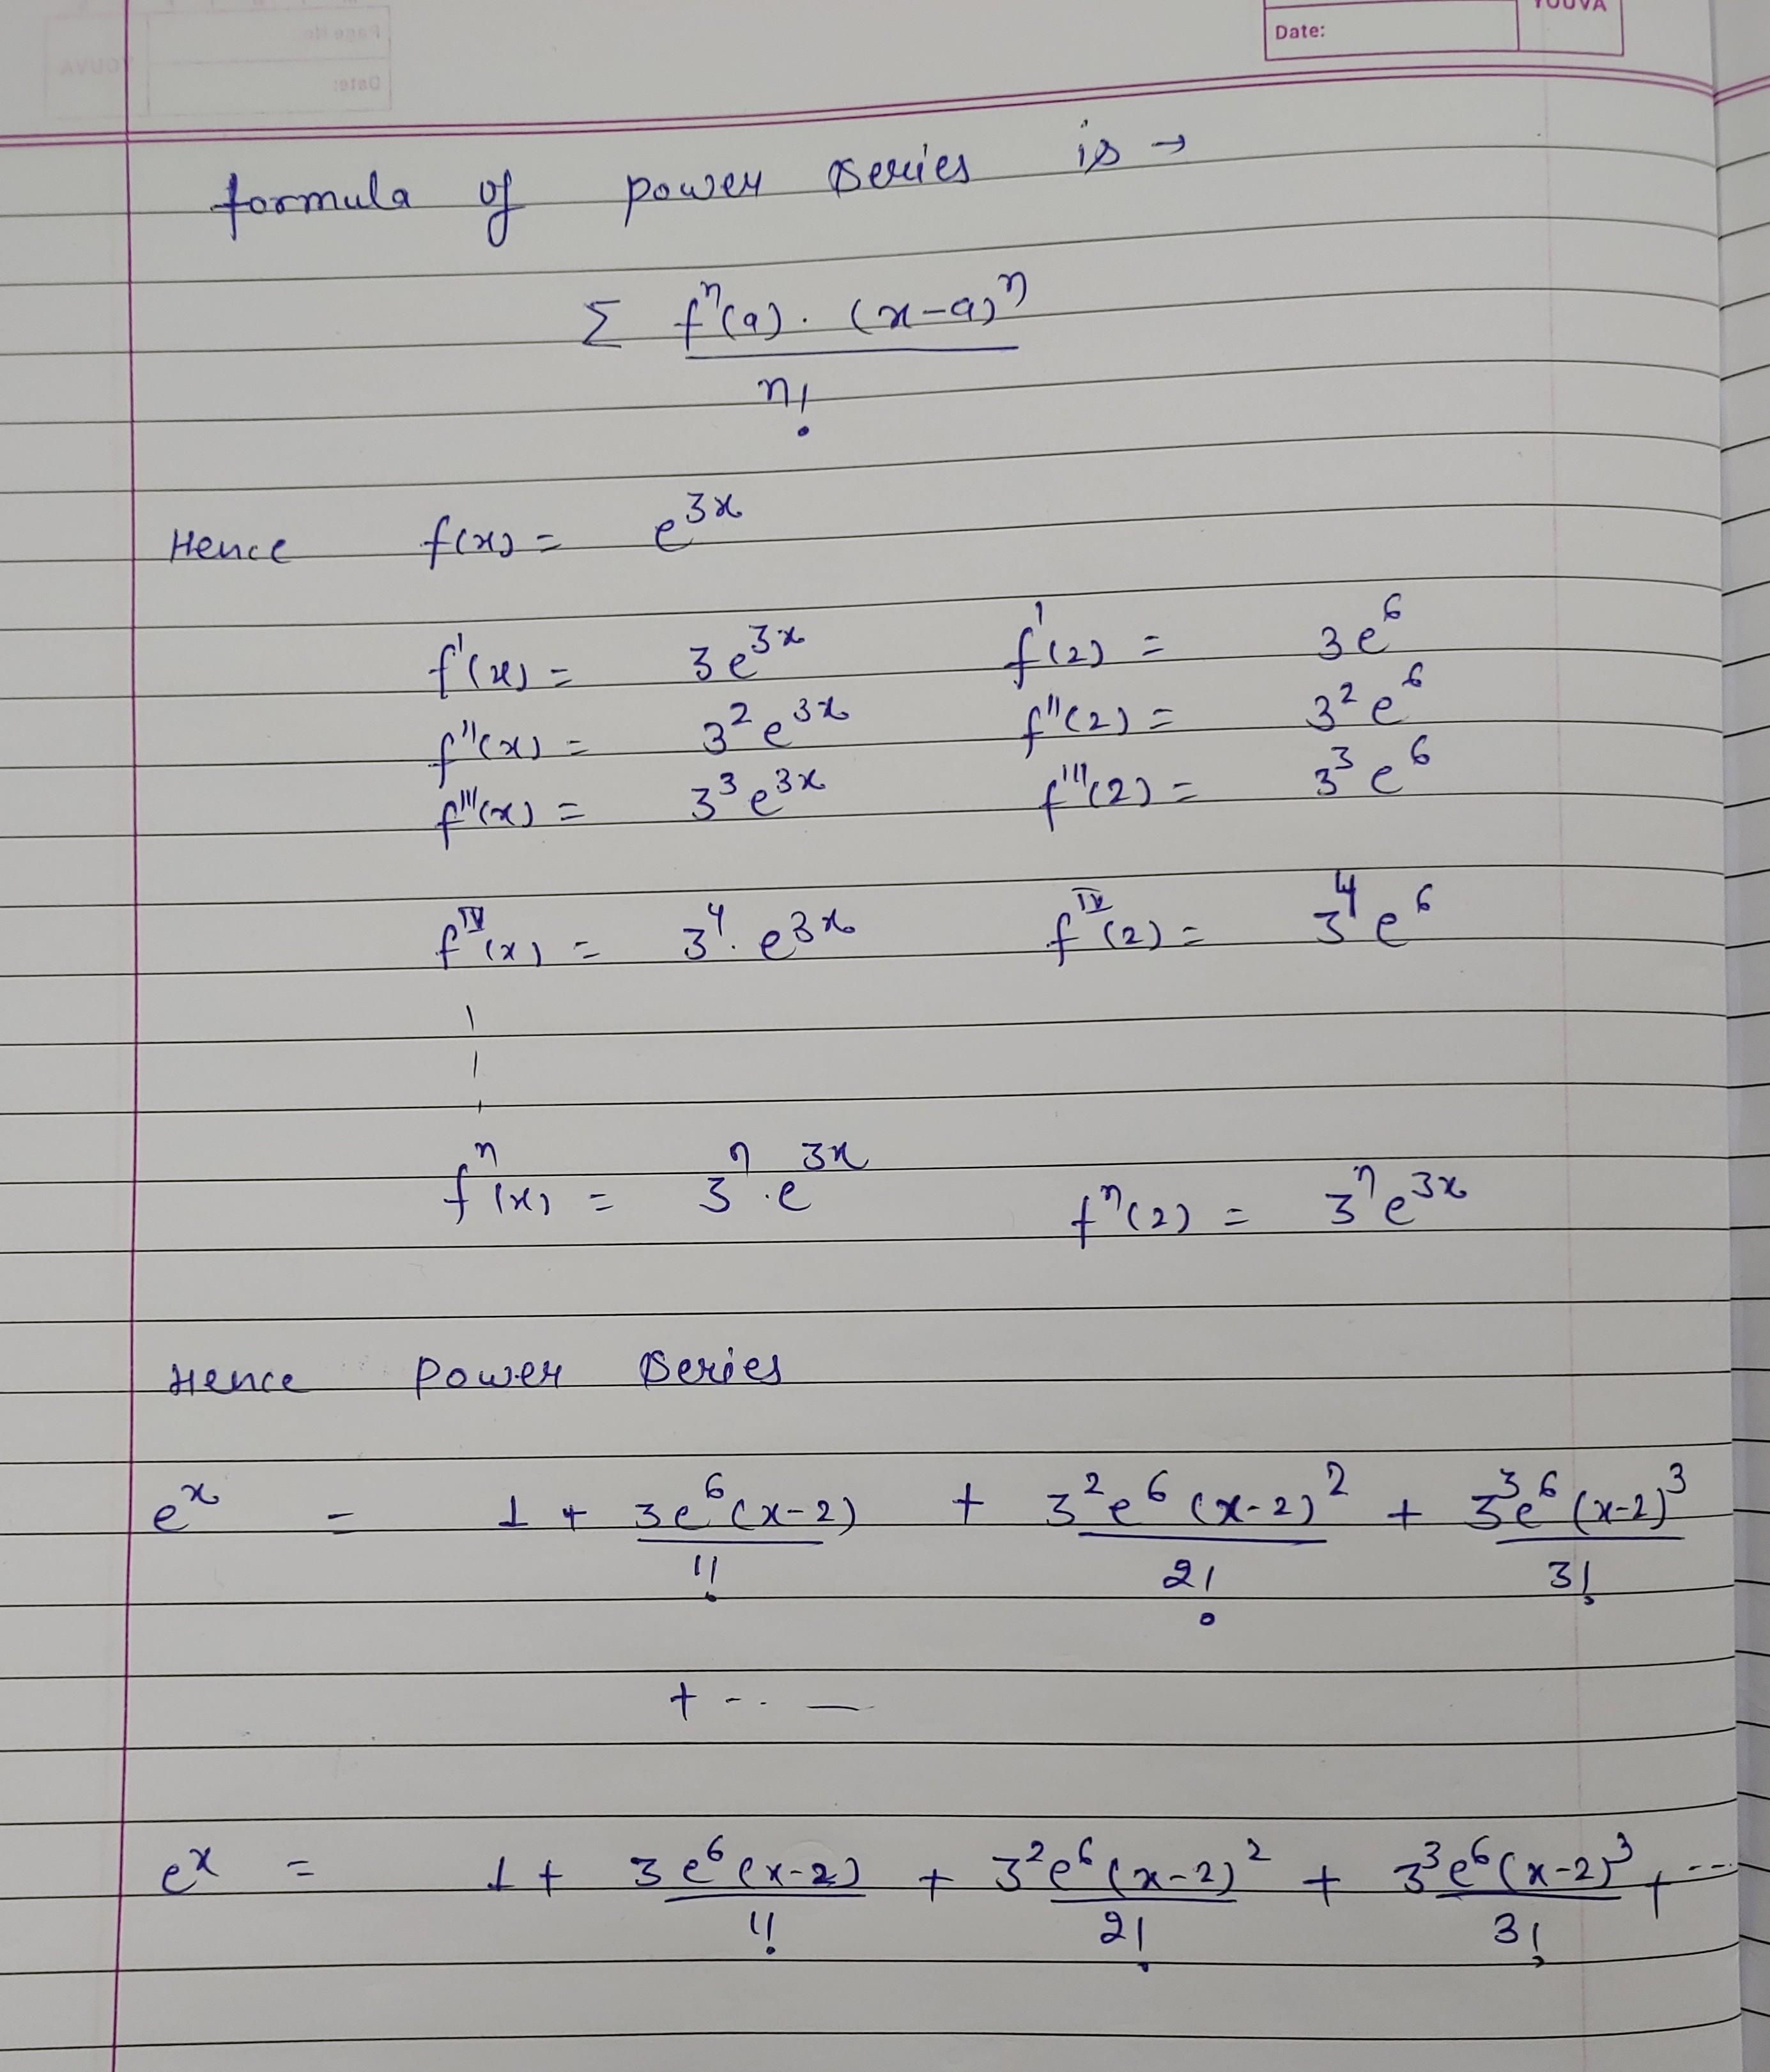 YOUVA
Date:
formula of power series is →
Σ fⁿ(a) . (x-a)ⁿ
n!
Hence f(x) = e^3x
f'(x) = 3e^3x f'(2) = 3e^6
f''(x) = 3^2 e^3x f''(2) = 3^2 e^6
f'''(x) = 3^3 e^3x f'''(2) = 3^3 e^6
f^IV(x) = 3^4 . e^3x f^IV(2) = 3^4 e^6
f^n(x) = 3^n . e^3x f^n(2) = 3^n e^3x
Hence Power Series
e^x = 1 + 3e^6(x-2) + 3^2 e^6 (x-2)^2 + 3^3 e^6 (x-2)^3
1! 2! 3!
+ -- . —
e^x = 1 + 3e^6(x-2) + 3^2 e^6 (x-2)^2 + 3^3 e^6 (x-2)^3 + ---
1! 2! 3!